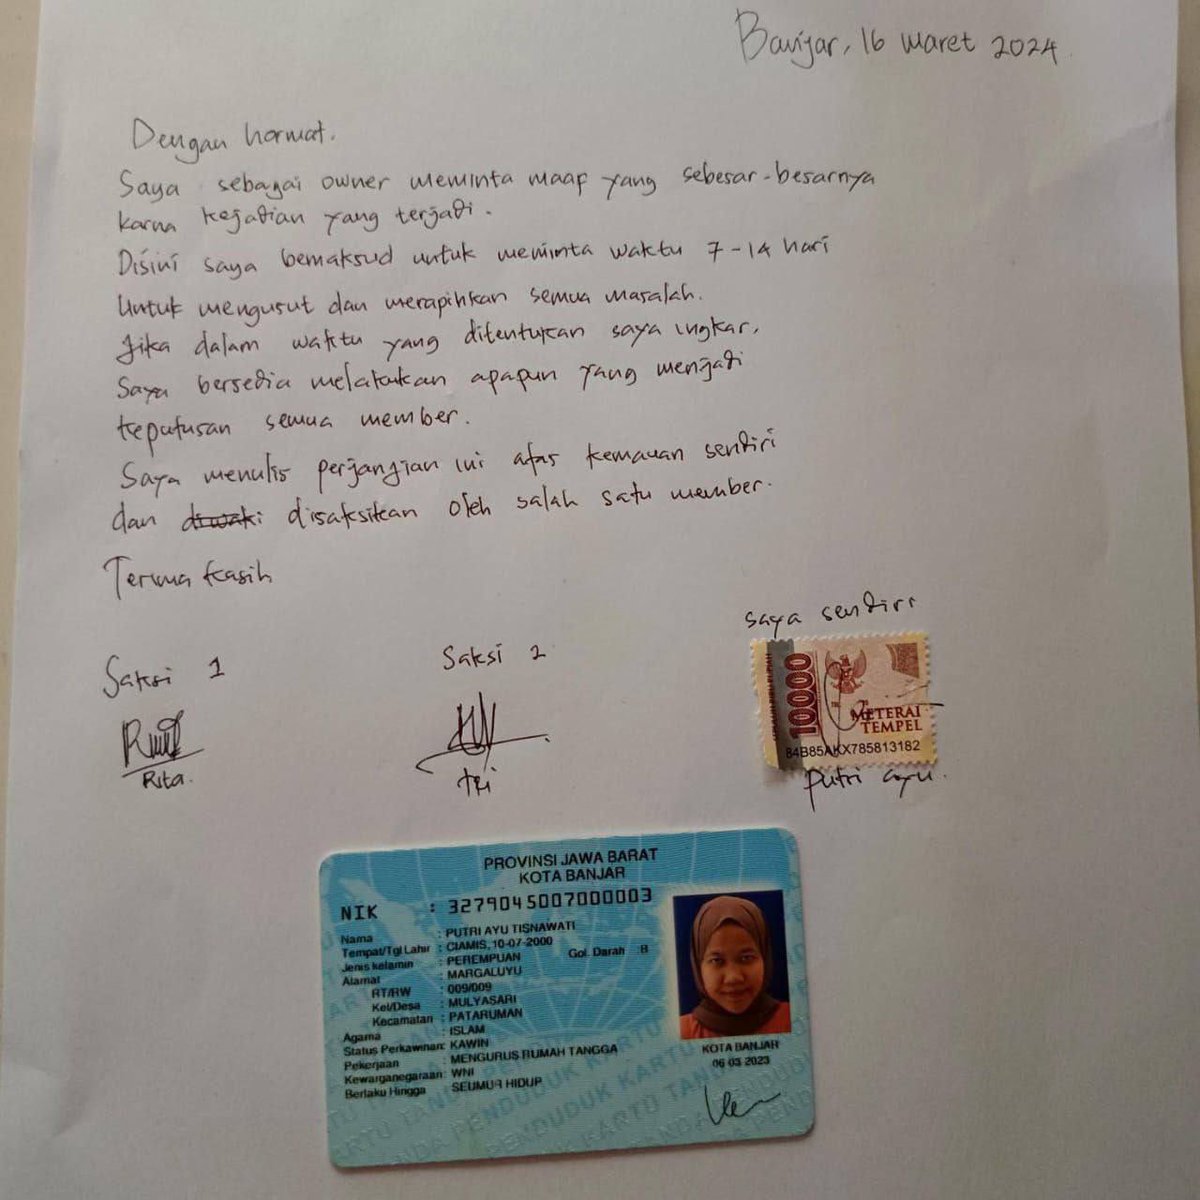 Banjar, 16 Maret 2024
Dengan hormat.
Saya sebagai owner meminta maap yang sebesar-besarnya
karna kejadian yang terjadi.
Disini saya bemaksud untuk meminta waktu 7-14 hari
Untuk mengusut dan merapihkan semua masalah.
Jika dalam waktu yang ditentukan saya ingkar,
Saya bersedia melakukan apapun yang menjadi
keputusan semua member.
Saya menulis perjangjian ini atas kemauan sendiri
dan diwaki disaksikan oleh salah satu member.
Terima kasih
saya sendiri
Saksi 1
Saksi 2
10000
METERAI
TEMPEL
84B85AKX785813182
Rita.
tri
putri ayu.
PROVINSI JAWA BARAT
KOTA BANJAR
NIK : 3279045007000003
Nama : PUTRI AYU TISNAWATI
Tempat/Tgl Lahir : CIAMIS, 10-07-2000
Jenis kelamin : PEREMPUAN Gol. Darah B
Alamat : MARGALUYU
RT/RW : 009/009
Kel/Desa : MULYASARI
Kecamatan : PATARUMAN
Agama : ISLAM
Status Perkawinan: KAWIN
Pekerjaan : MENGURUS RUMAH TANGGA
Kewarganegaraan: WNI
Berlaku Hingga : SEUMUR HIDUP
KOTA BANJAR
06-03-2023